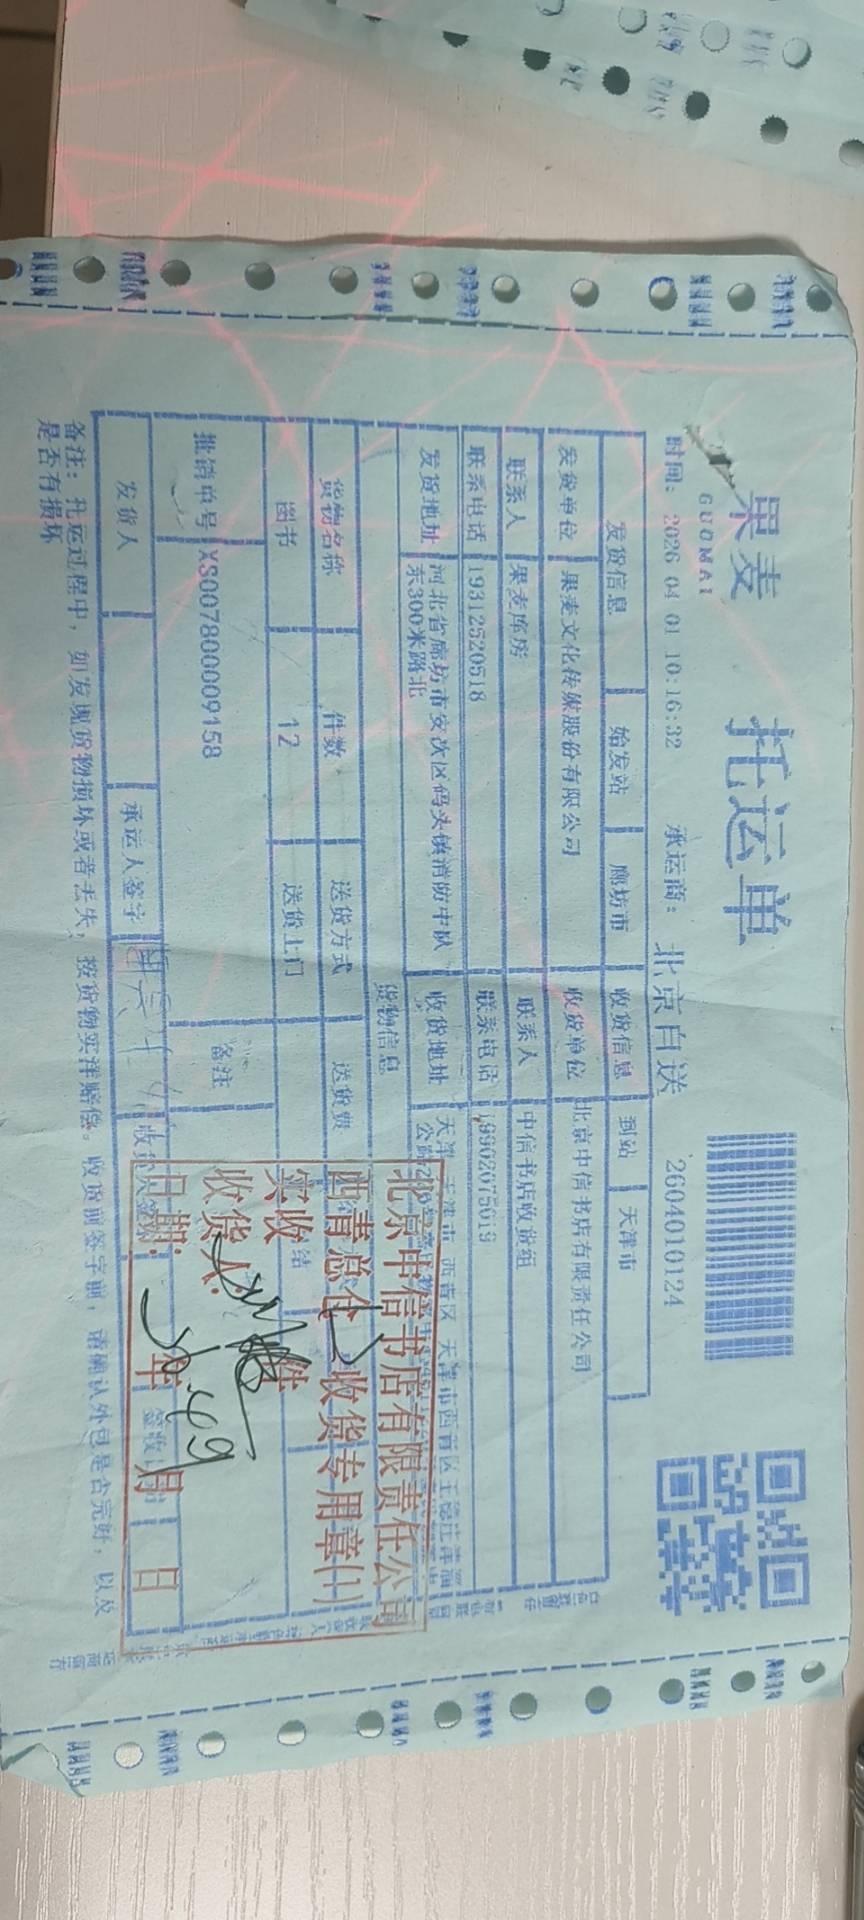 果麦
GUOMAI
托运单
时间: 2026 04 01 10:16:32 承运商: 北京自送 2604010124
发货信息 始发站 廊坊市 收货信息 到站 天津市
发货单位 果麦文化传媒股份有限公司 收货单位 北京中信书店有限责任公司
联系人 果麦库房 联系人 中信书店收货组
联系电话 19312520518 联系电话 19902075019
发货地址 河北省廊坊市安次区码头镇消防中队东300米路北 收货地址 天津 天津市 西青区 天津市西青区王稳庄津淄公路
货物信息
货物名称 件数 送货方式 送货费
图书 12 送货上门
批销单号 XS007800009158 备注
发货人 承运人签字 签收
备注: 托运过程中, 如发现货物损坏或者丢失, 按货物实洋赔偿。收货前签字前, 请确认外包是否完好, 以及
是否有损坏
北京中信书店有限责任公司
西青总仓 收货专用章(1)
实收 件
收货人:
日期: 年 月 日